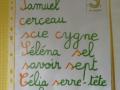 Samuel
cerceau
scie cygne
Séléna sel
savoir sept
Célia serre-tête